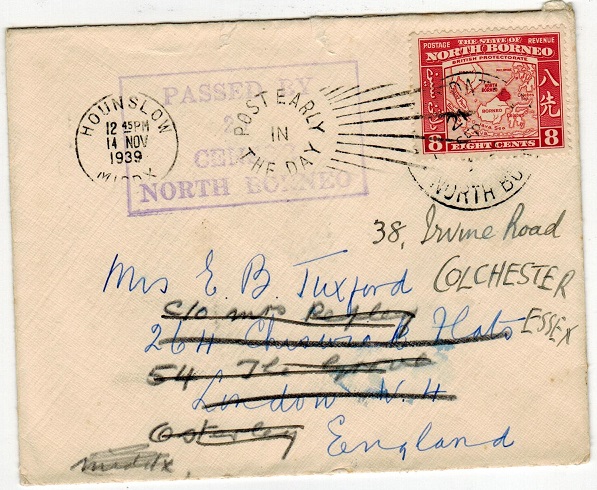 POSTAGE THE STATE OF REVENUE
NORTH BORNEO
BRITISH PROTECTORATE
八先
BORNEO
8 EIGHT CENTS 8
NORTH BO
HOUNSLOW
12 45PM
14 NOV
1939
MIDDX
POST EARLY
IN
THE DAY
PASSED BY
2
CE
NORTH BORNEO
38, Irvine Road
COLCHESTER
ESSEX
Mrs E B Tuxford
c/o Mrs
264 Chiswick Flats
54 The
London W.4
Osterley
England
Middx